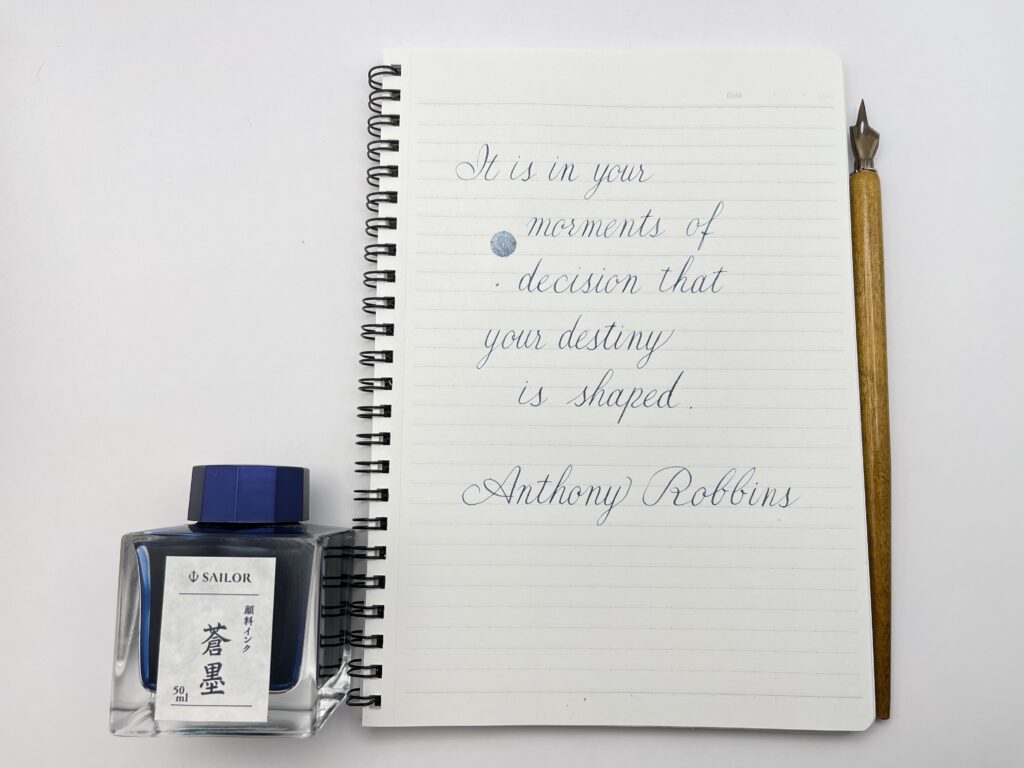 It is in your
morments of
decision that
your destiny
is shaped.
Anthony Robbins
SAILOR
顔料インク
蒼墨
50
ml